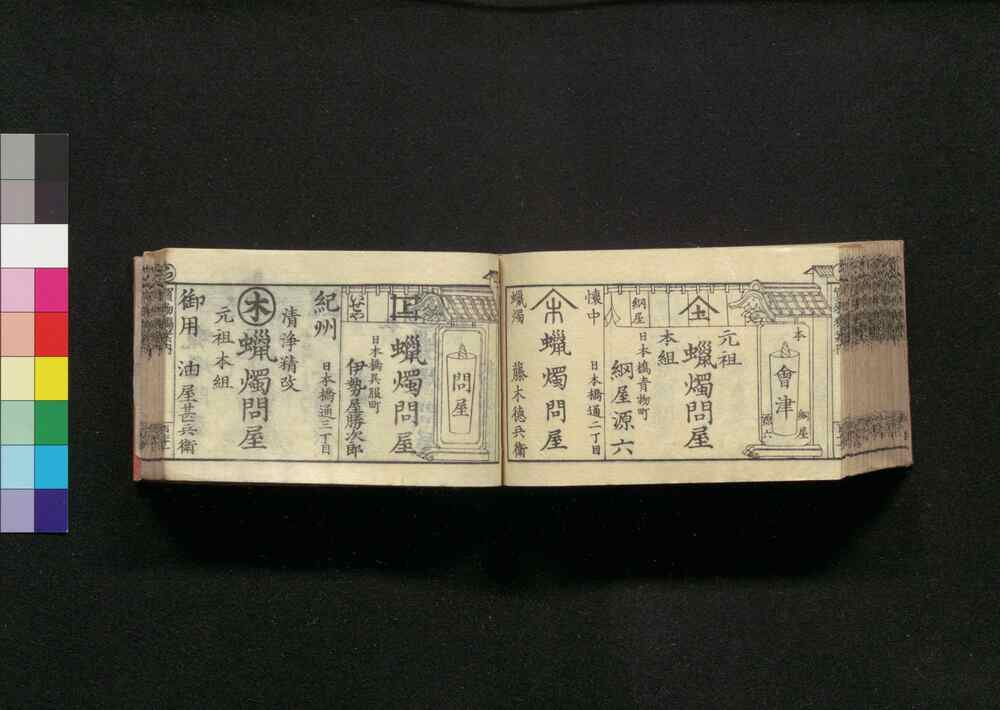 本
會津
綱屋
源六
元祖
蠟燭問屋
本組
綱屋
日本橋青物町
綱屋源六
懐中
日本橋通二丁目
本
蠟燭問屋
蠟燭
藤木徳兵衛
問屋
蠟燭問屋
日本橋呉服町
伊勢屋勝次郎
いせや
紀州
日本橋通三丁目
清浄精改
木
蠟燭問屋
元祖本組
御用
油屋甚兵衛